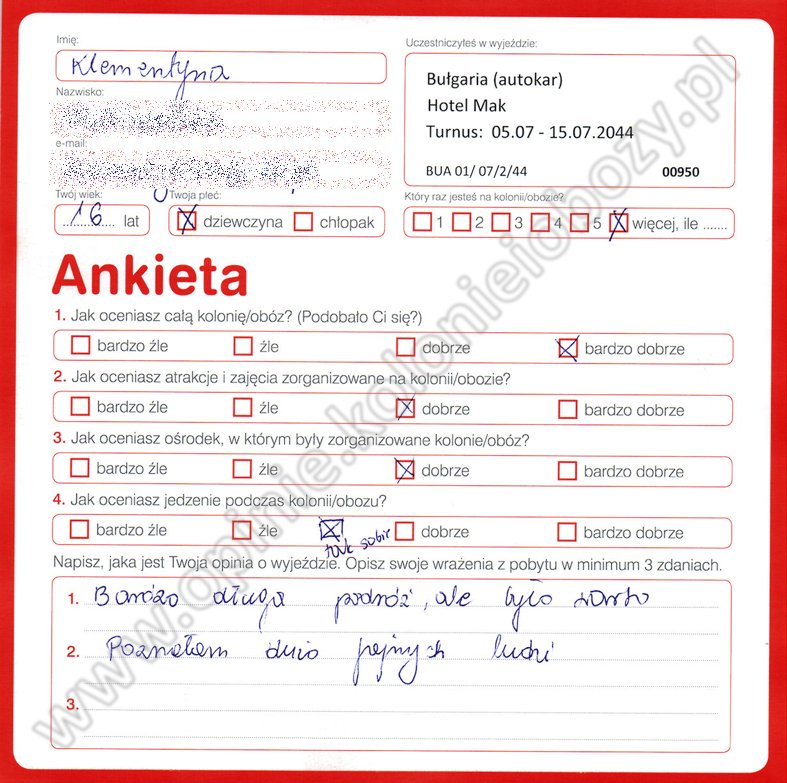 Imię:
Klementyna
Nazwisko:
e-mail:
Twój wiek:
16 lat
Twoja płeć:
dziewczyna chłopak
Uczestniczyłeś w wyjeździe:
Bułgaria (autokar)
Hotel Mak
Turnus: 05.07 - 15.07.2044
BUA 01/ 07/2/44 00950
Który raz jesteś na kolonii/obozie?
1 2 3 4 5 więcej, ile .......
Ankieta
1. Jak oceniasz całą kolonię/obóz? (Podobało Ci się?)
bardzo źle źle dobrze bardzo dobrze
2. Jak oceniasz atrakcje i zajęcia zorganizowane na kolonii/obozie?
bardzo źle źle dobrze bardzo dobrze
3. Jak oceniasz ośrodek, w którym były zorganizowane kolonie/obóz?
bardzo źle źle dobrze bardzo dobrze
4. Jak oceniasz jedzenie podczas kolonii/obozu?
bardzo źle źle dobrze bardzo dobrze
tak sobie
Napisz, jaka jest Twoja opinia o wyjeździe. Opisz swoje wrażenia z pobytu w minimum 3 zdaniach.
1. Bardzo długa podróż, ale było warto
2. Poznałam dużo fajnych ludzi
3.
www.opinie.kolonieiobozy.pl